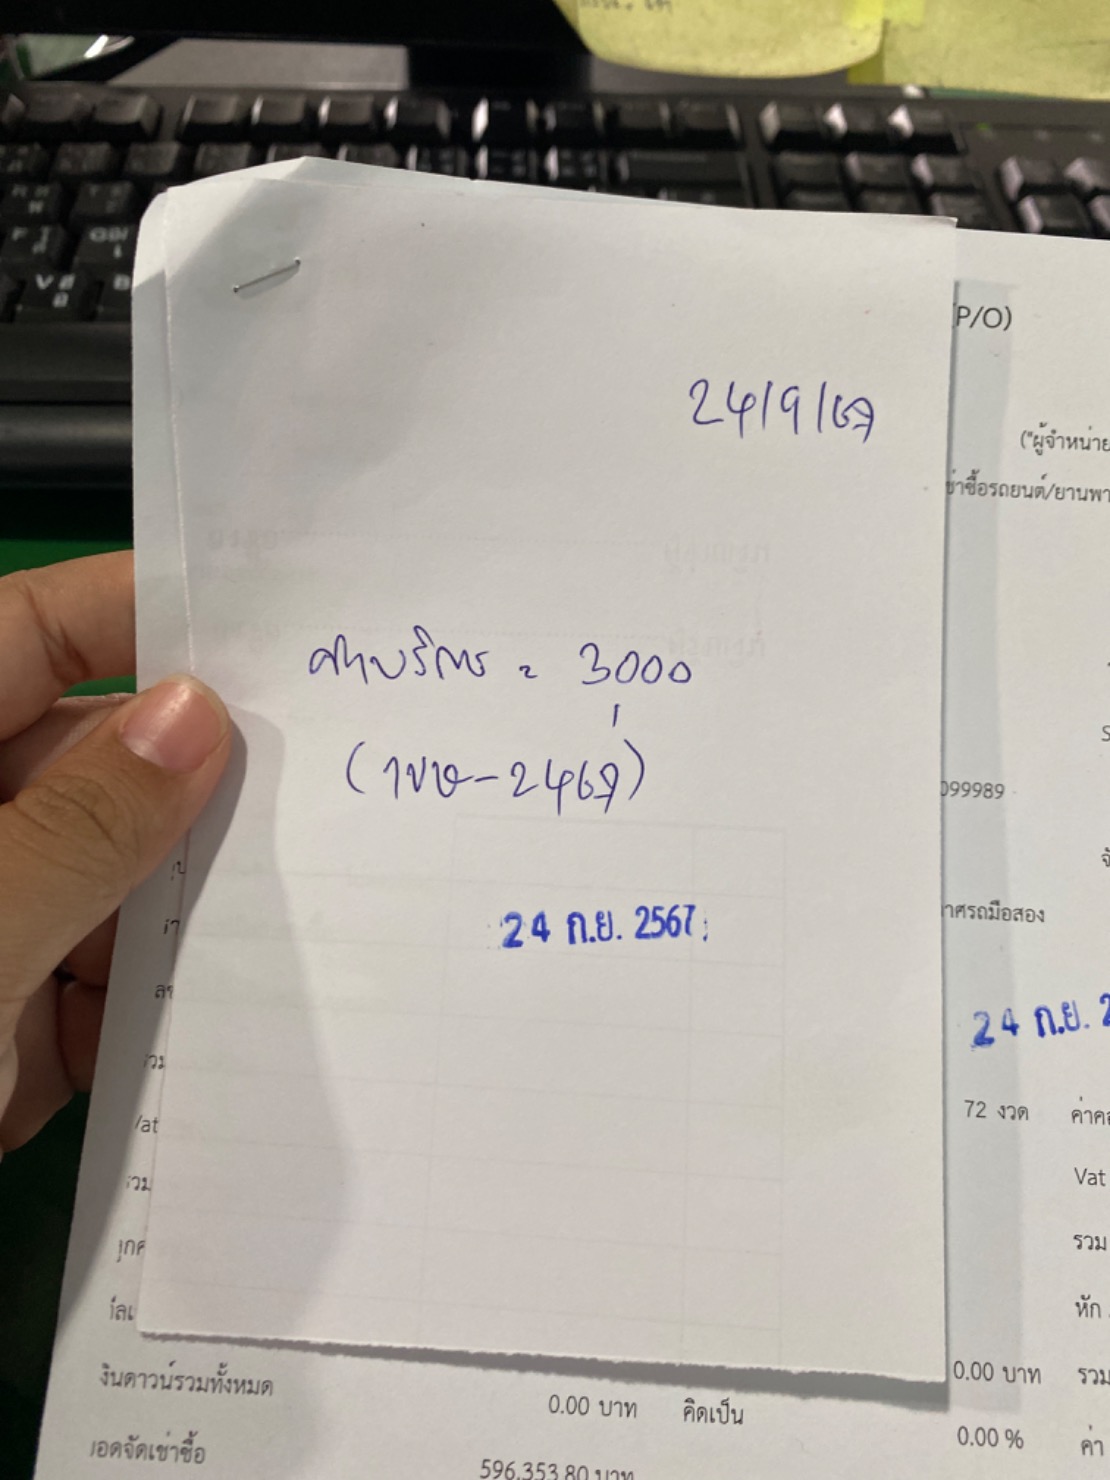 (P/O)
24/9/67
("ผู้จำหน่าย
ช่าซื้อรถยนต์/ยานพา
ค่าบริการ = 3000
099989
าศรถมือสอง
24 ก.ย. 2567
24 ก.ย. 2
72 งวด
/at
Vat
รวม
หัก
งินดาวน์รวมทั้งหมด 0.00 บาท คิดเป็น 0.00 บาท รวม
0.00 % ค่า
อดจัดเช่าซื้อ 596,353.80 บาท